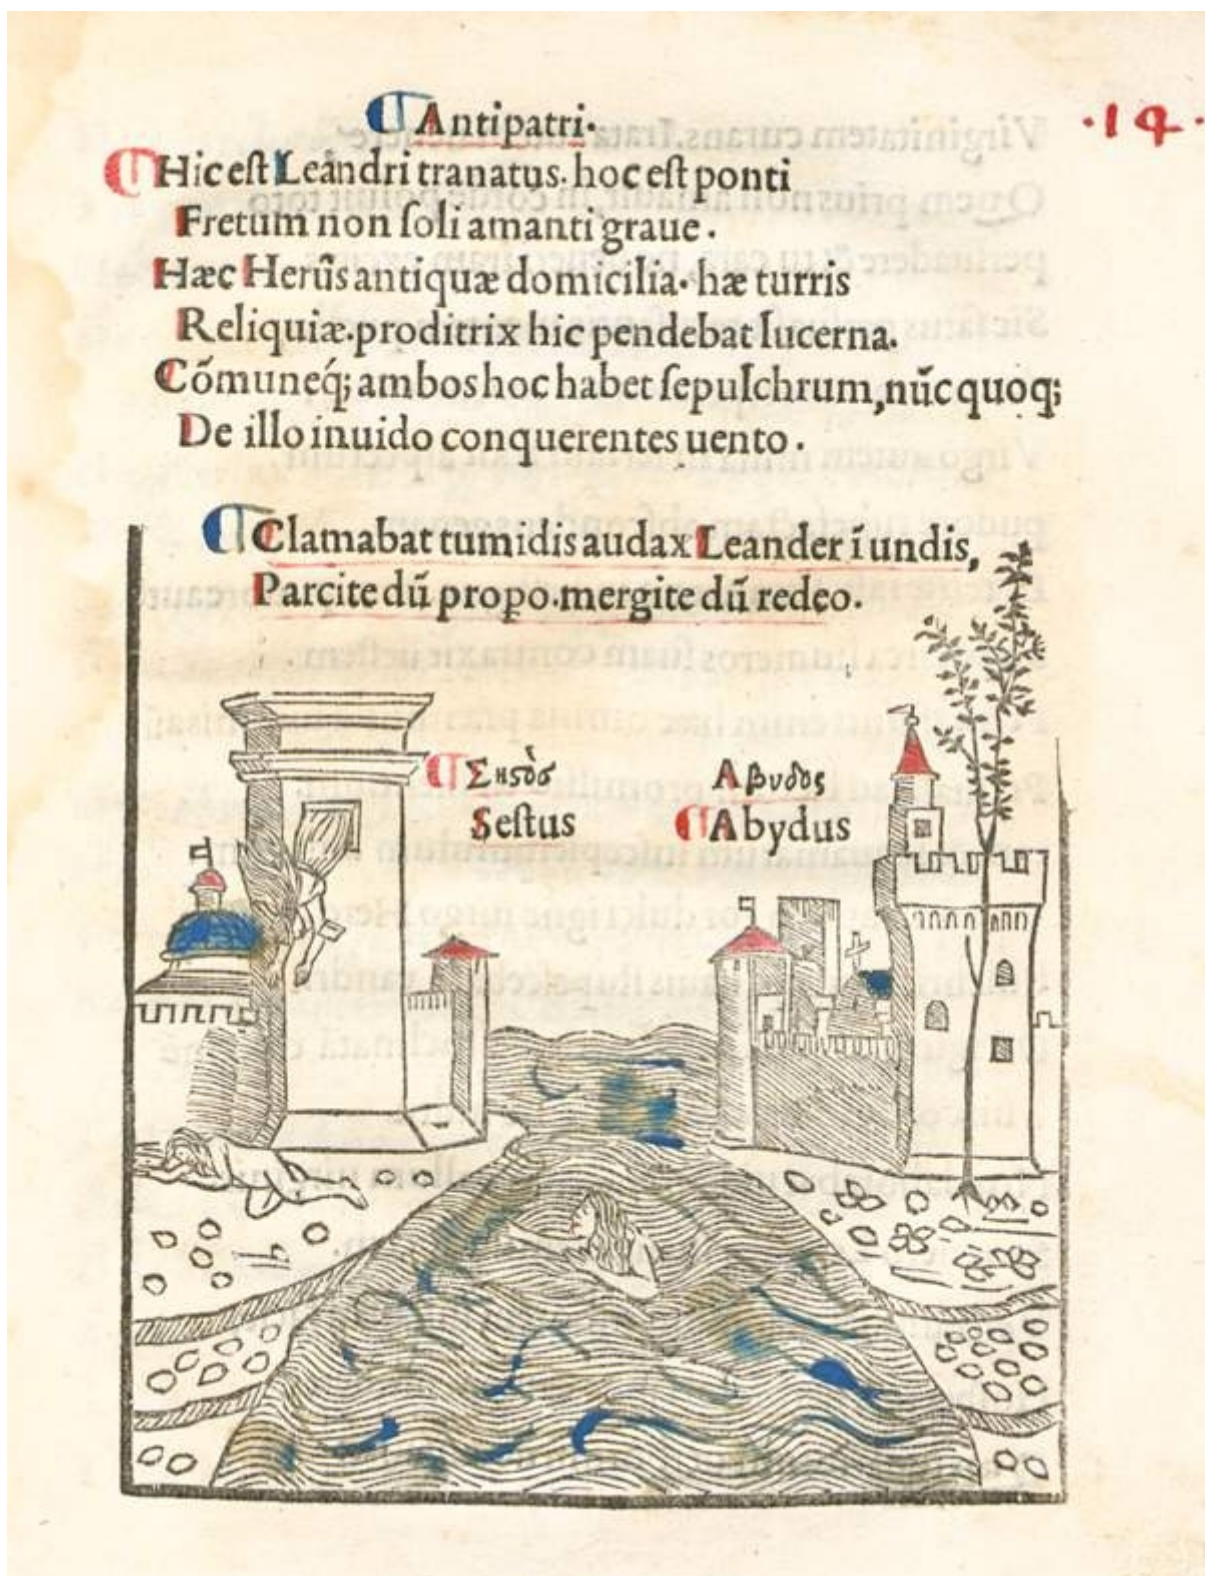 Antipatri·
·14·
Hic eſt Leandri tranatus· hoc eſt ponti
Fretum non ſoli amanti graue ·
Hæc Herûs antiquæ domicilia· hæ turris
Reliquiæ·proditrix hic pendebat lucerna·
Cõmuneq́; ambos hoc habet ſepulchrum, nũc quoq;
De illo inuido conquerentes uento ·
Clamabat tumidis audax Leander ĩ undis,
Parcite dũ propo·mergite dũ redeo·
Σηϛὸσ Αβυδος
Seſtus Abydus